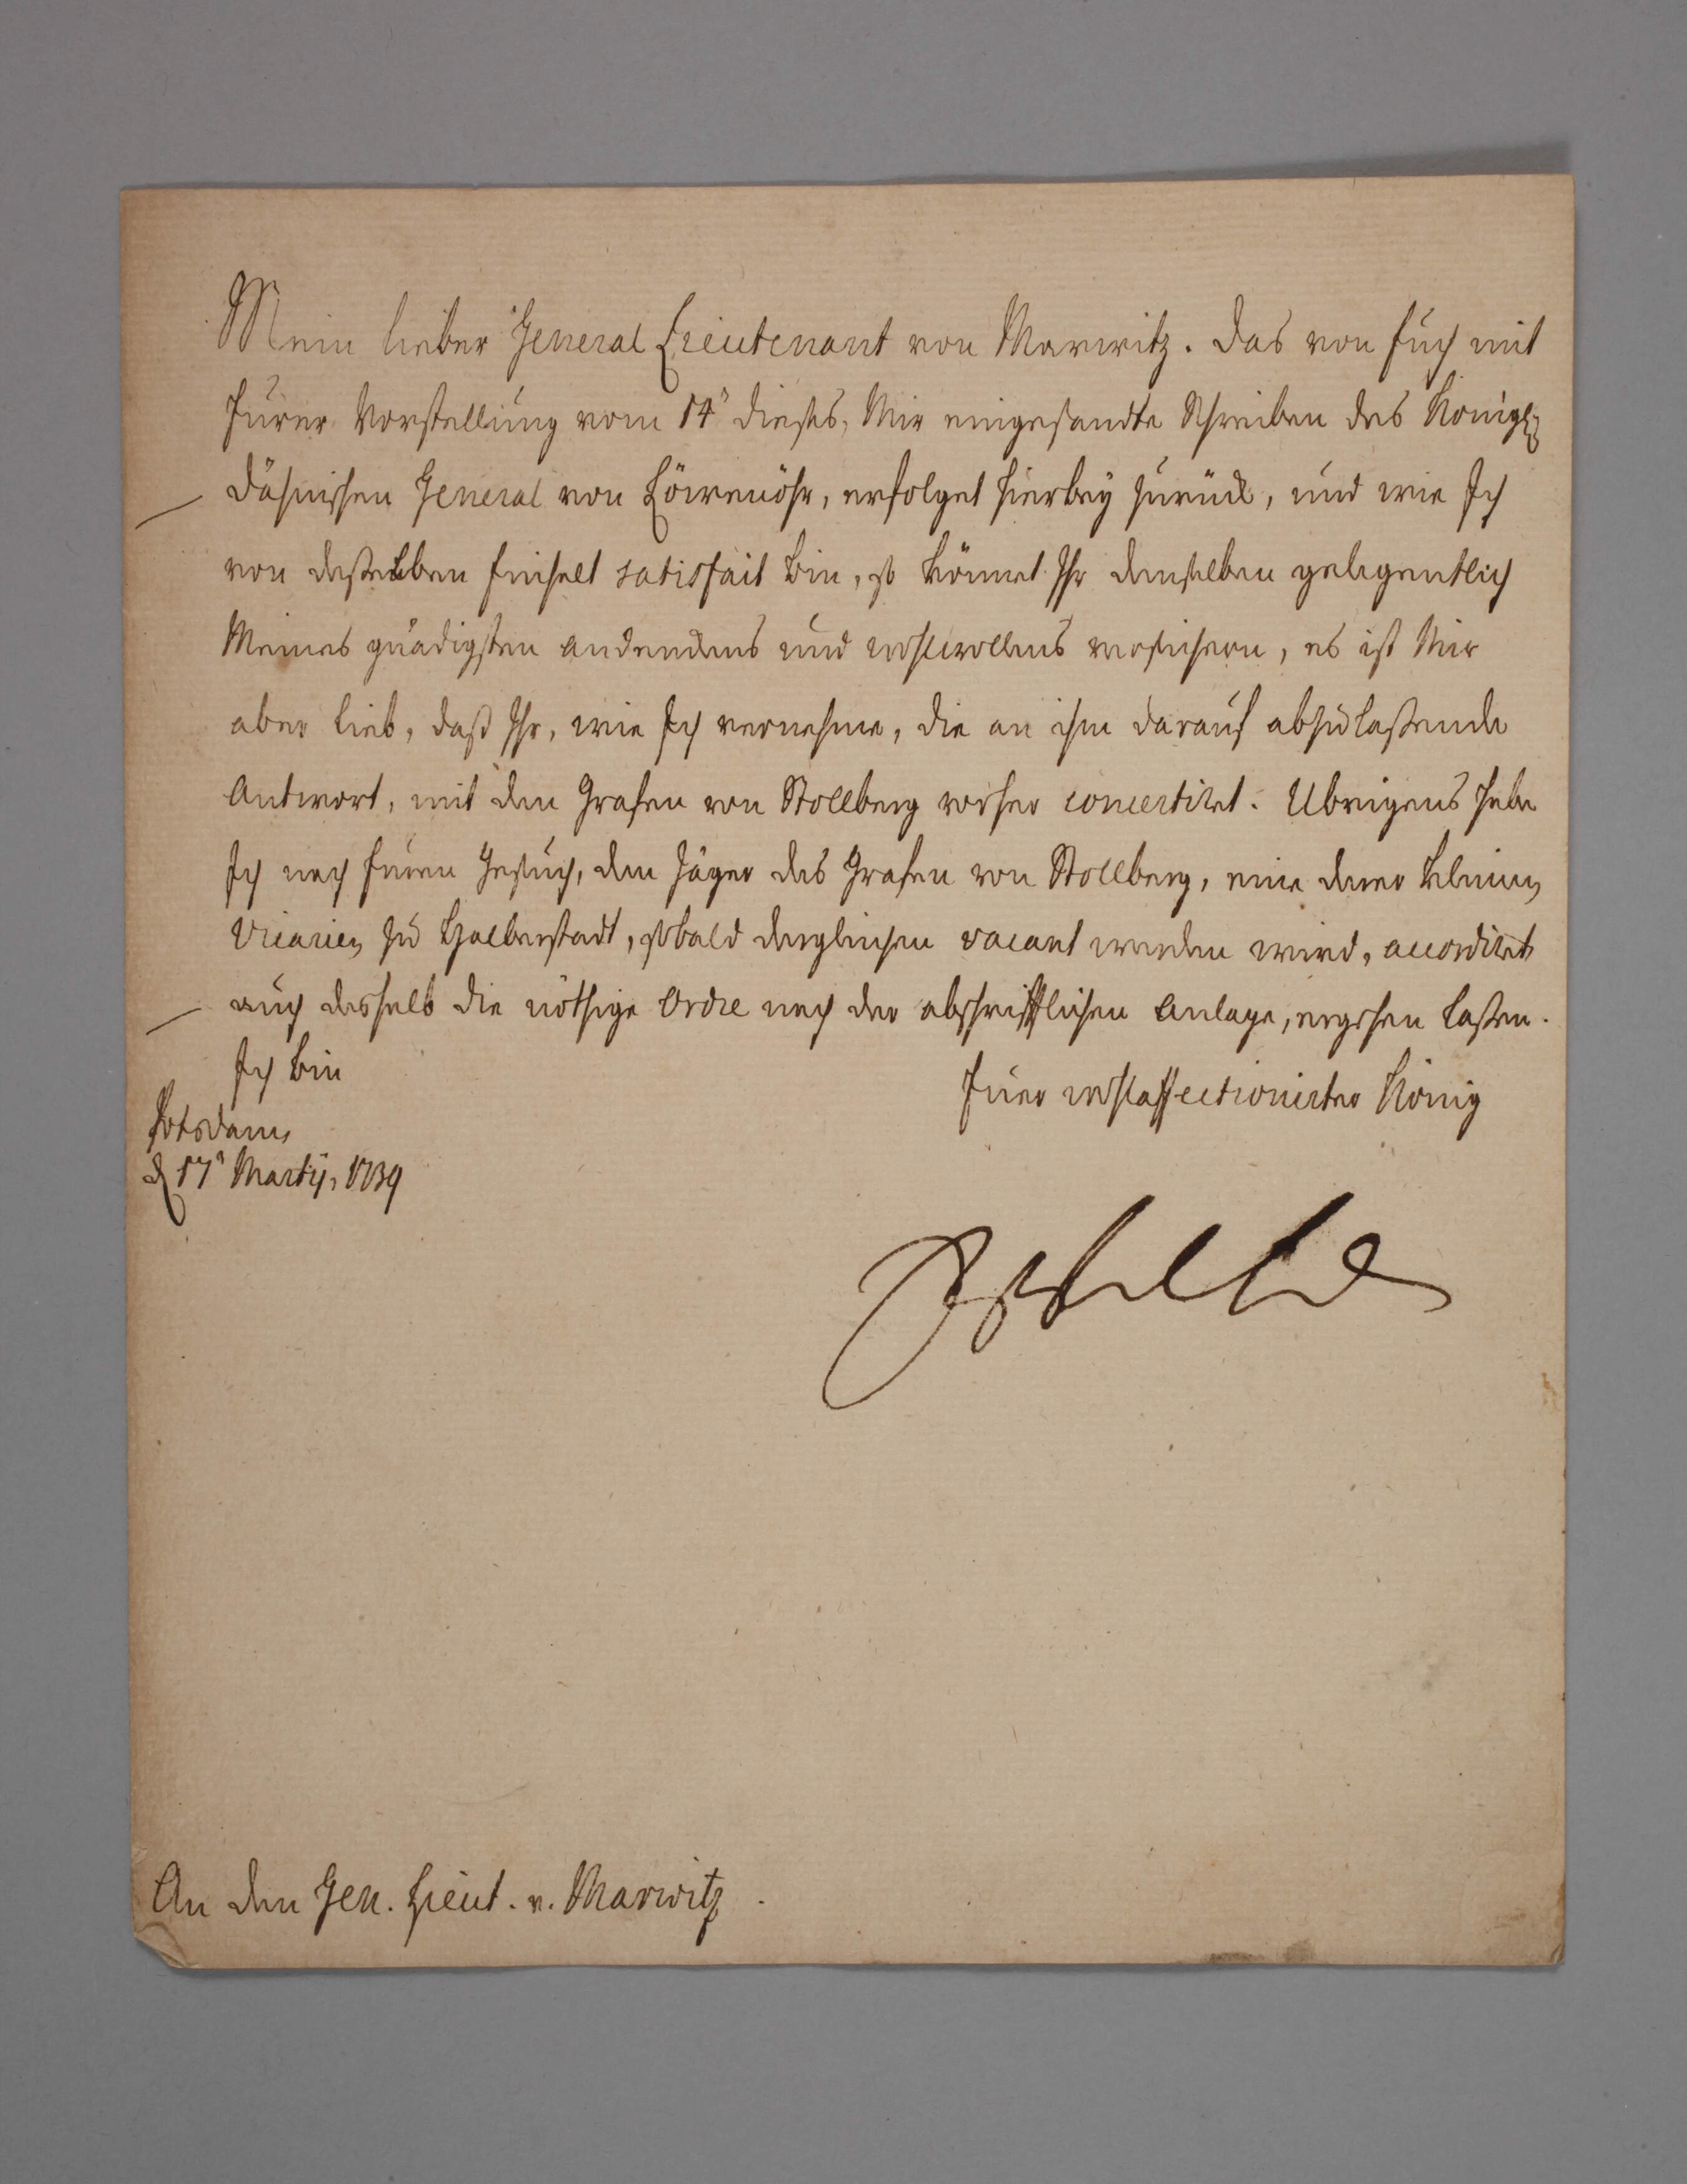 Mein lieber General Lieutenant von Marwitz. Das von Euch mit
Eurer Vorstellung vom 14ⁿ dieses, Mir eingesandte Schreiben des Königl.
Dähnischen General von Löwenöhr, erfolget hierbey zurück, und wie Ich
von deßelben satisfait bin, so könnet Ihr denselben gelegentlich
Meines gnädigsten andenckens und wohlwollens versichern, es ist Mir
aber lieb, daß Ihr, wie Ich vernehme, die an ihm darauf abzulaßende
Antwort, mit dem Grafen von Stollberg vorher concertiret. Ubrigens habe
Ich nach Euren Gesuch, dem Jäger des Grafen von Stollberg, eine derer kleinen
Vicarien zu Halberstadt, sobald dergleichen vacant werden wird, accordiret
auch deshalb die nöthige Ordre nach der abschrifftlichen Anlage, ergehen laßen.
Ich bin
Euer wohlaffectionirter König
Potsdam,
d 17ⁿ Martij, 1739
An den Gen. Lieut. v. Marwitz